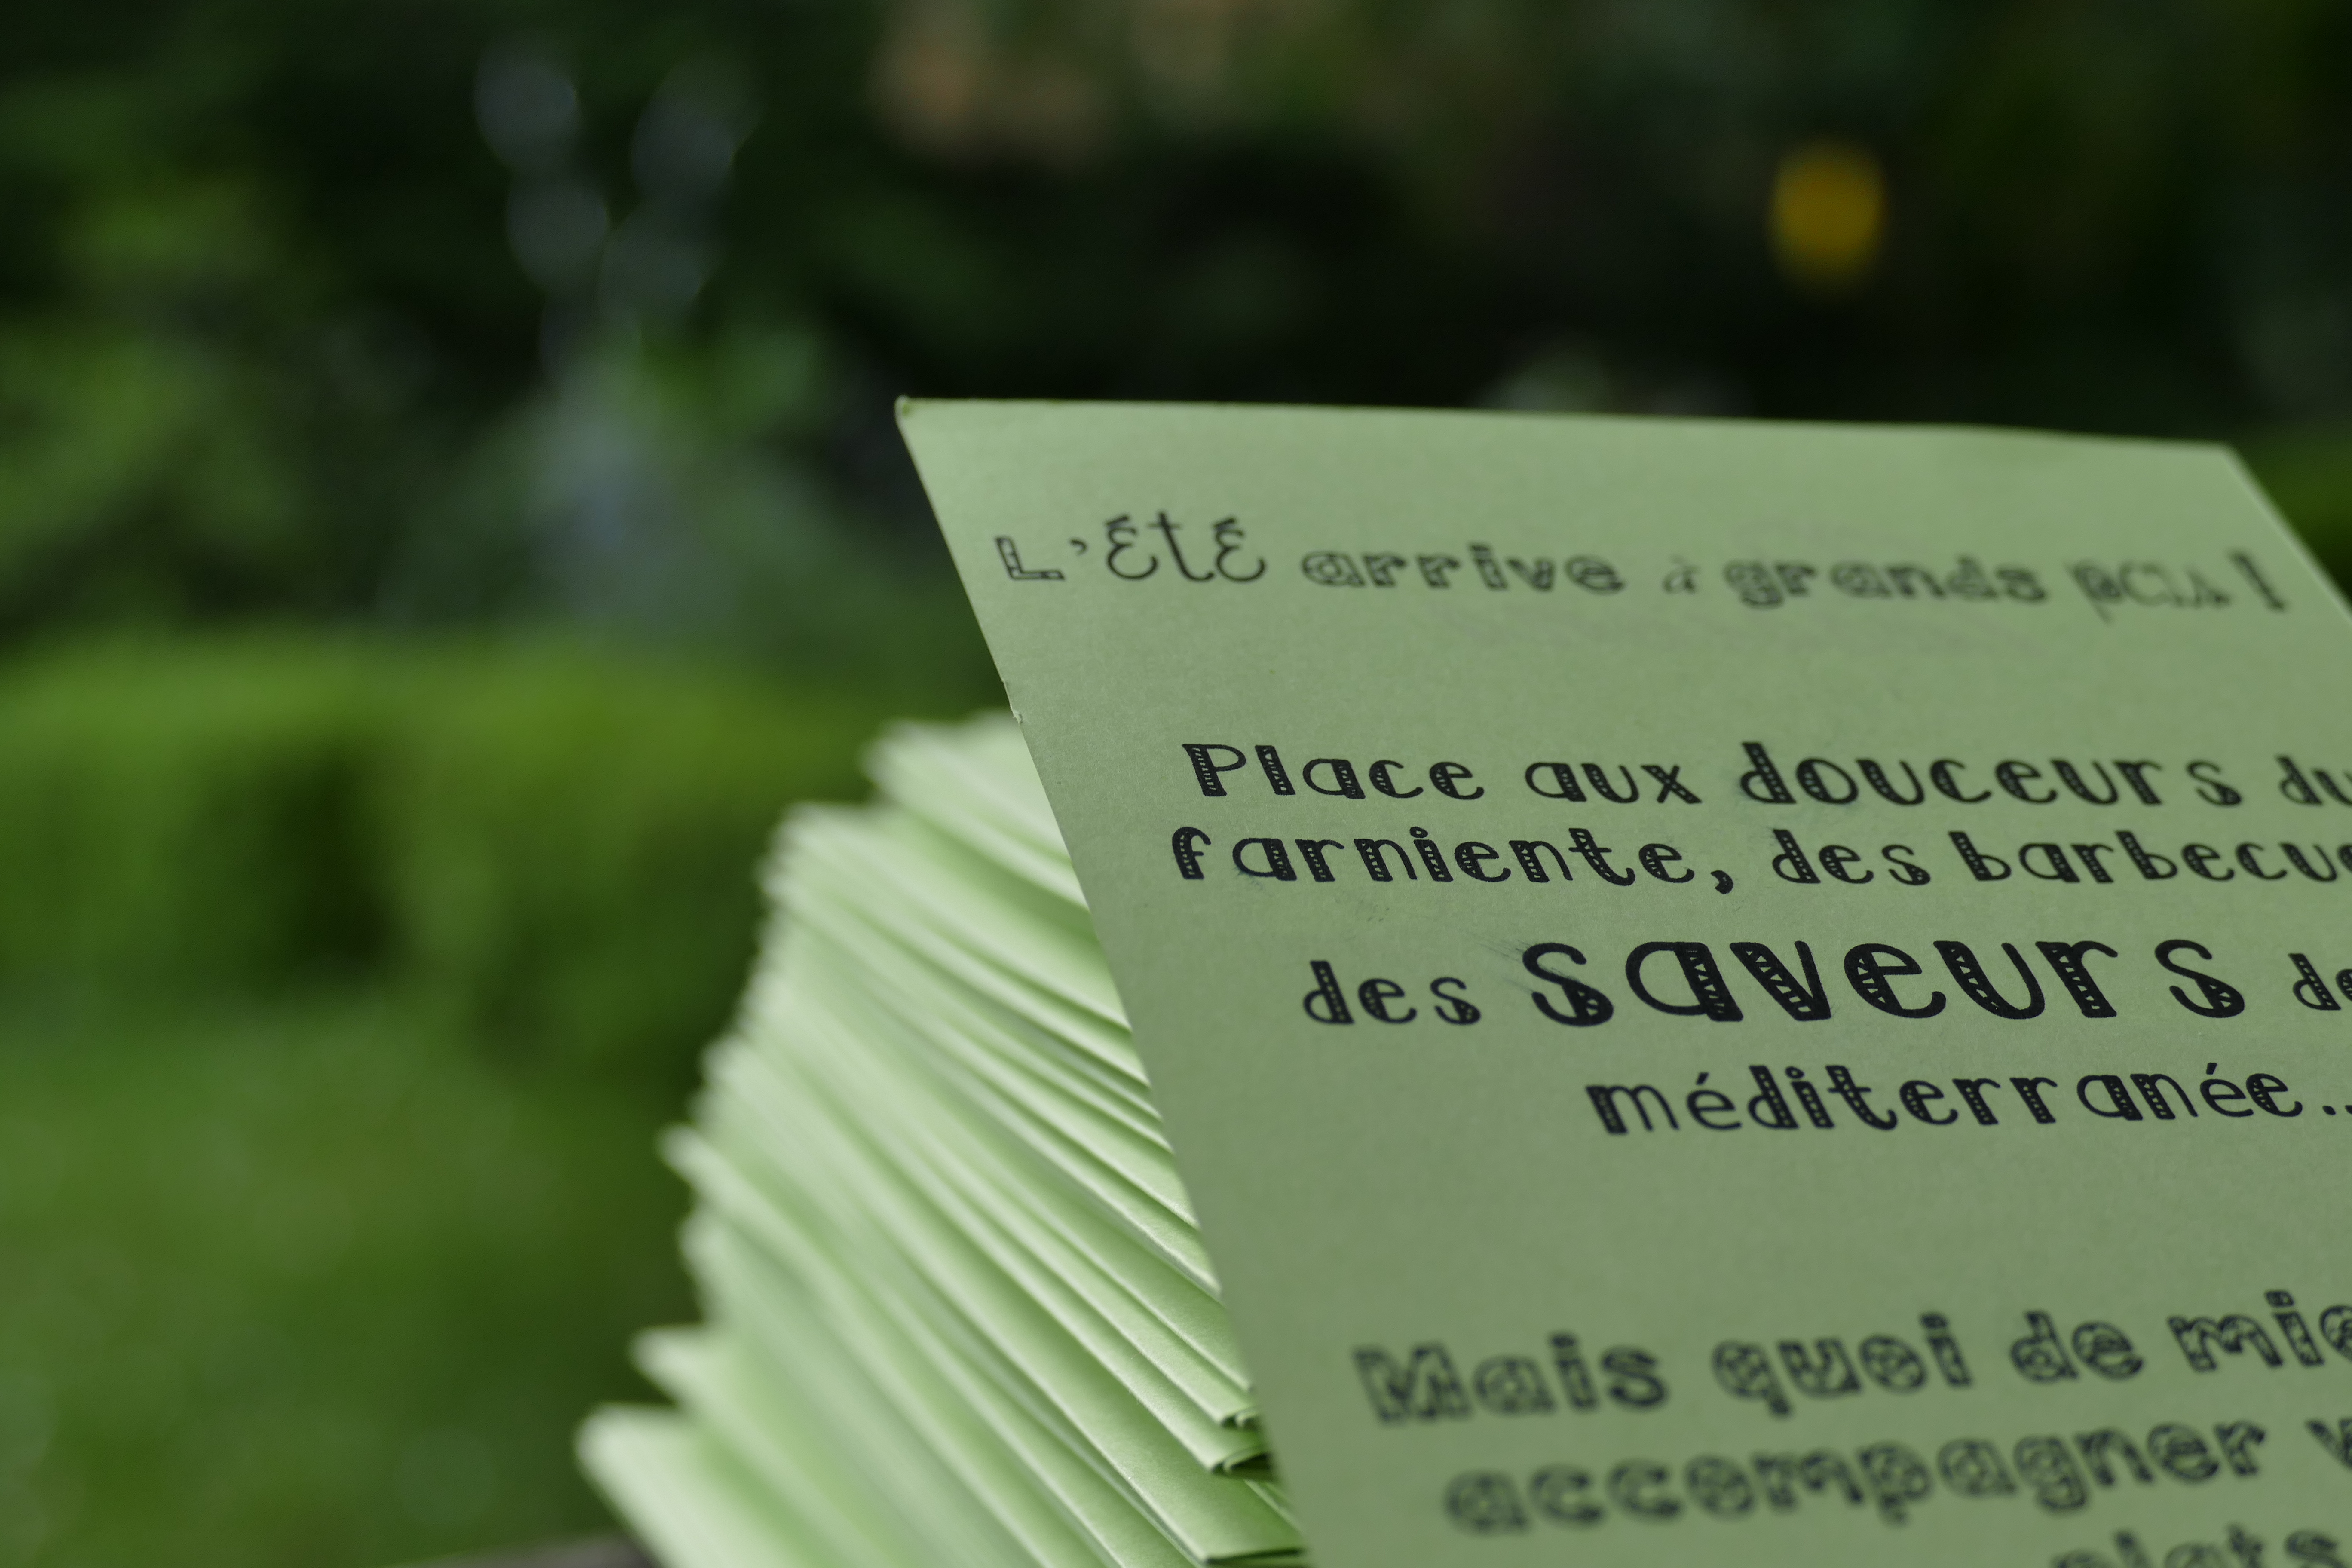 L'été arrive à grands pas !
Place aux douceurs du
farniente, des barbecue
des saveurs de
méditerranée..
Mais quoi de mie
accompagner v
plats